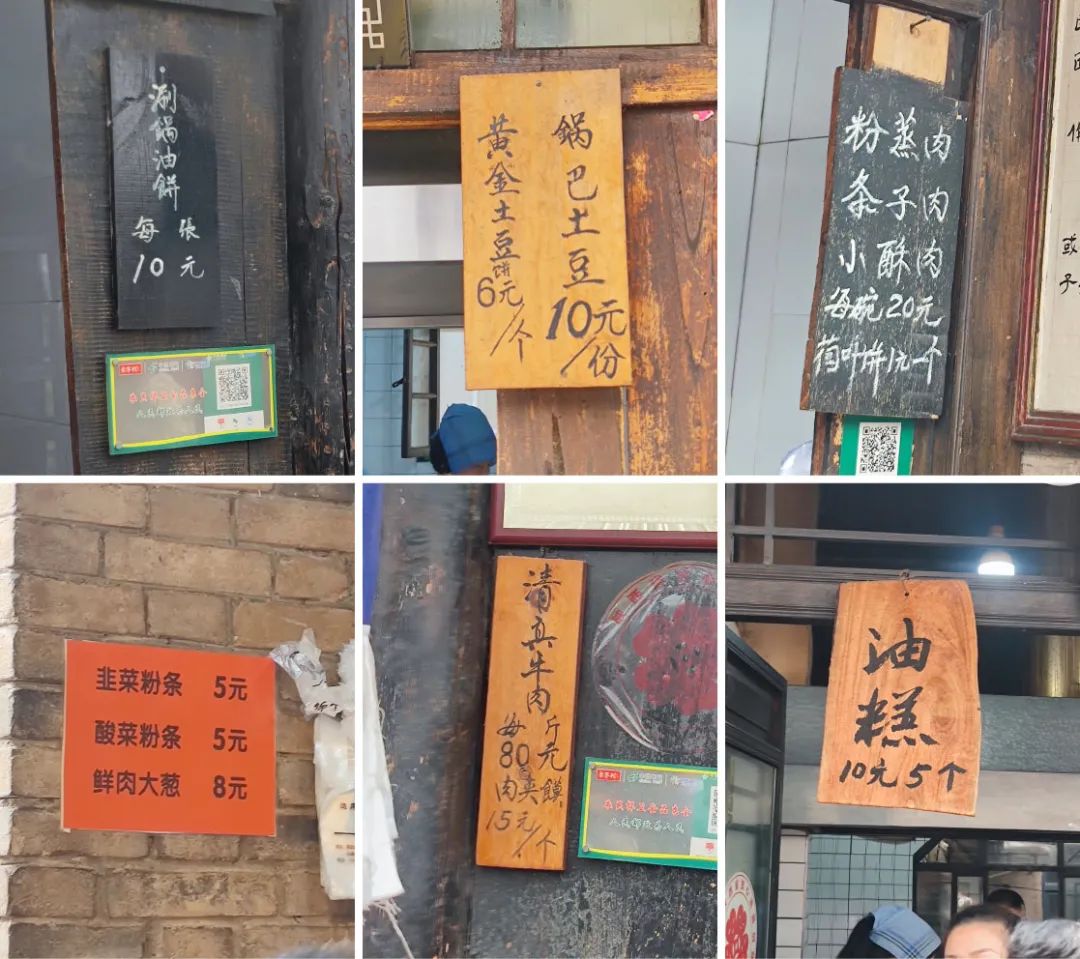 涮鍋油餅
每張
10元
锅巴土豆
10元/份
黄金土豆饼
6元/个
粉蒸肉
条子肉
小酥肉
每碗20元
荷叶饼1元一个
韭菜粉条 5元
酸菜粉条 5元
鲜肉大葱 8元
清真牛肉
每斤
80元
肉夹馍
15元/个
油
糕
10元5个